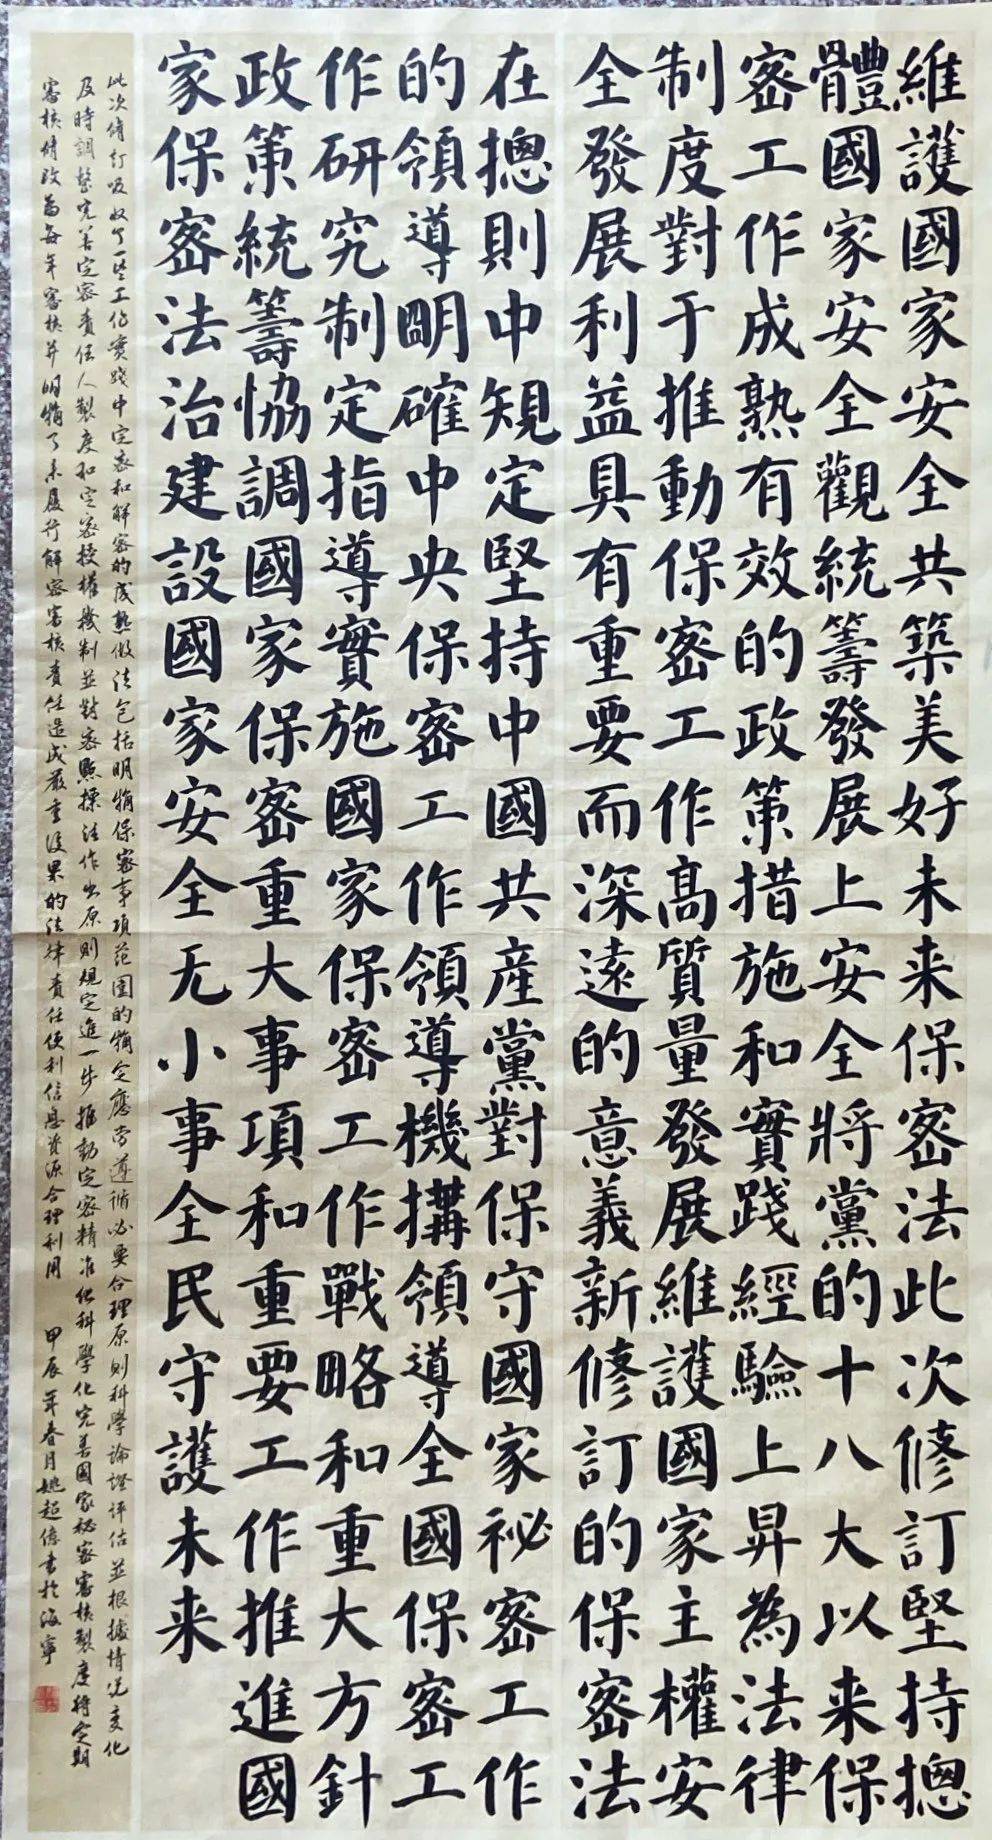 維護國家安全共築美好未来保密法此次修訂堅持摠
體國家安全觀統籌發展上安全將黨的十八大以来保
密工作成熟有效的政策措施和實踐經驗上昇為法律
制度對于推動保密工作高質量發展維護國家主權安
全發展利益具有重要而深遠的意義新修訂的保密法
在摠則中規定堅持中國共産黨對保守國家祕密工作
的領導明確中央保密工作領導機搆領導全國保密工
作研究制定指導實施國家保密工作戰略和重大方針
政策統籌協調國家保密重大事項和重要工作推進國
家保密法治建設國家安全无小事全民守護未来
此次修訂吸收了一些工作實踐中定密和解密的成熟做法包括明確保密事項范圍的確定應當遵循必要合理原則科學論證評估並根據情况變化
及時調整完善定密責任人製度和定密授權機制並對密點標注作出原則規定進一步推動定密精准化科學化完善國家秘密審核製度將定期
審核修改為每年審核并明確了未履行解密審核責任造成嚴重後果的法律責任便利信息資源合理利用 甲辰年春月姚超億書於海寧